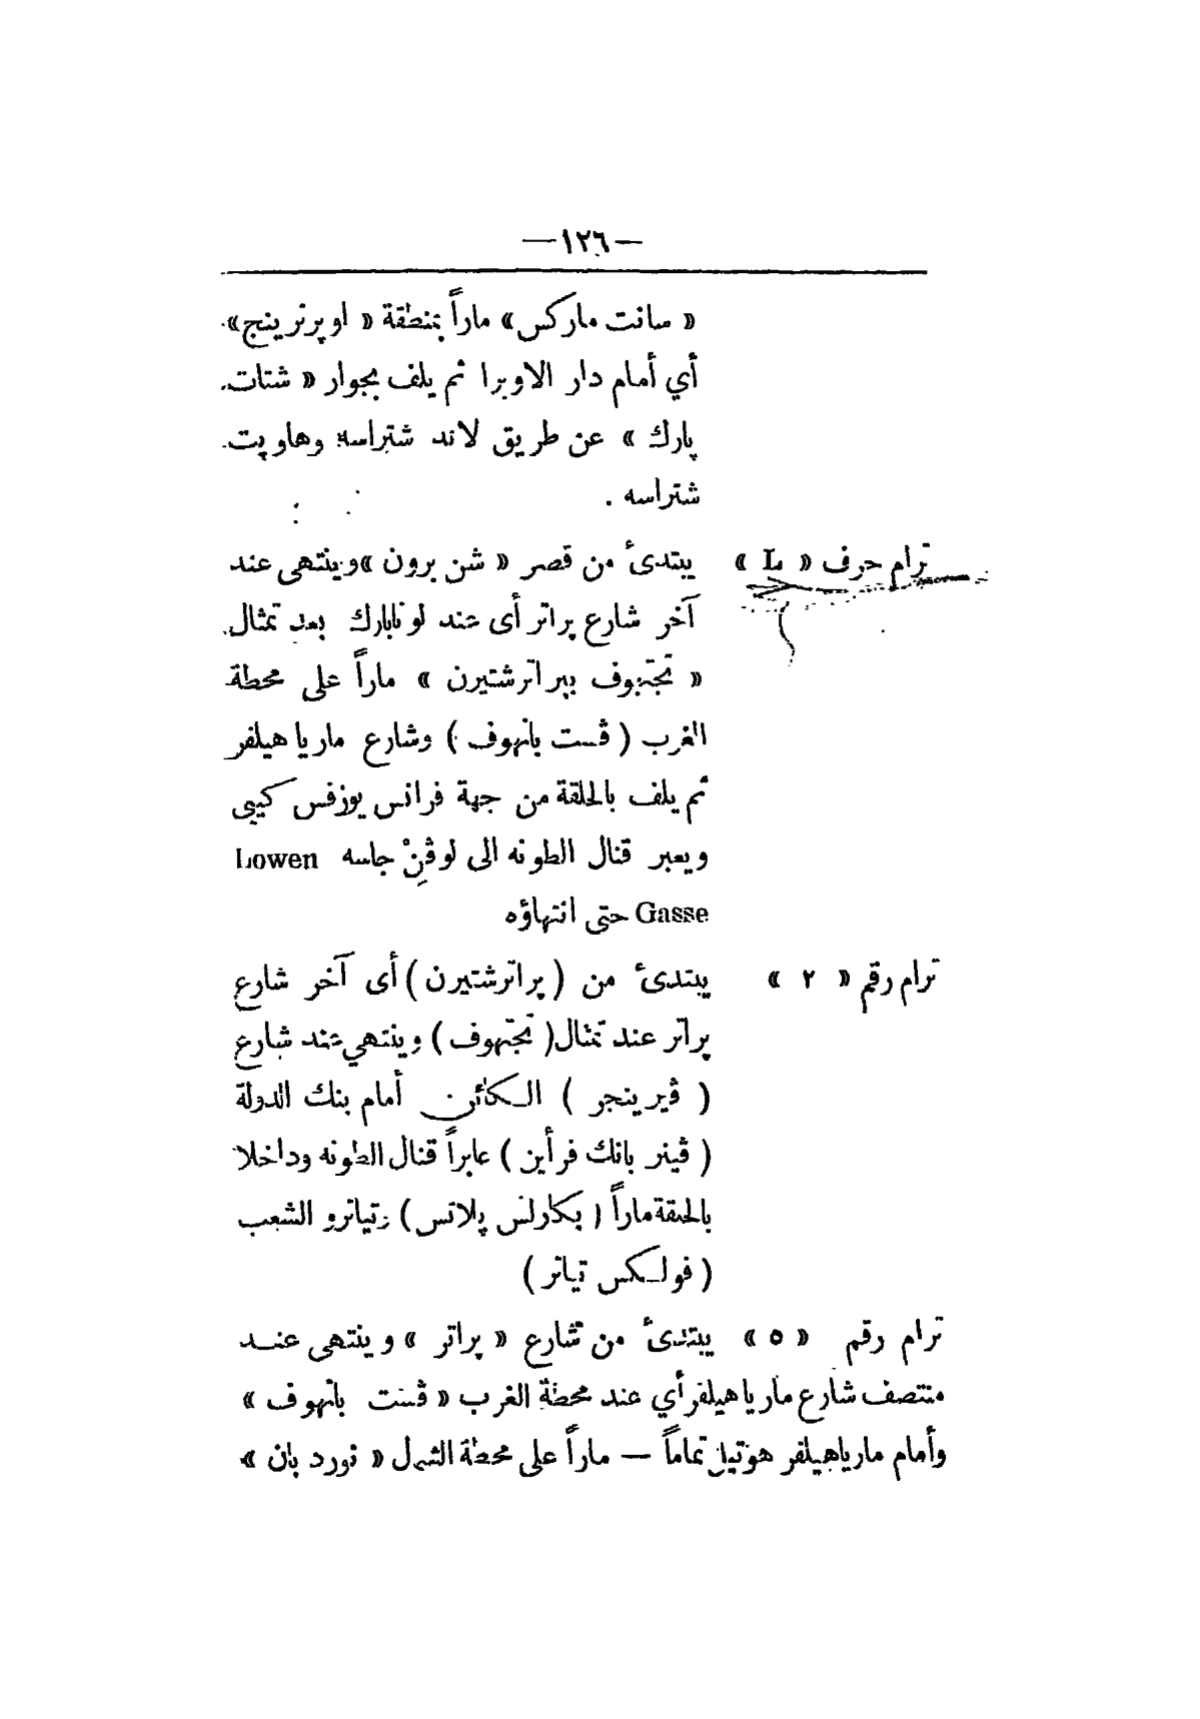 —١٢٦—
« سانت ماركس» ماراً بمنطقة « اوپرنرينج»
أي أمام دار الاوبرا ثم يلف بجوار « شتات
پارك » عن طريق لاند شتراسه وهاوپت
شتراسه .
ترام حرف « L » يبتدىء من قصر « شن برون »وينتهى عند
آخر شارع پراتر أى عند لونابارك بعد تمثال
« تجتهوف بپراترشتيرن » ماراً على محطة
الغرب ( ڤست بانهوف ) وشارع ماريا هيلفر
ثم يلف بالحلقة من جهة فرانس يوزفس كيى
ويعبر قنال الطونه الى لوڤنْ جاسه Lowen
Gasse حتى انتهاؤه
ترام رقم « ٢ » يبتدىء من ( پراترشتيرن ) أى آخر شارع
پراتر عند تمثال( تجتهوف ) وينتهي عند شارع
( ڤيرينجر ) الكائن أمام بنك الدولة
( ڤينر بانك فرأين ) عابراً قنال الطونه وداخلا
بالحلقة ماراً ( بكارلس پلاتس ) وتياترو الشعب
( فولكس تياتر )
ترام رقم « ٥ » يبتدىء من شارع « پراتر » وينتهى عند
منتصف شارع ماريا هيلفر أي عند محطة الغرب « ڤست بانهوف »
وأمام مارياهيلفر هوتيل تماماً — ماراً على محطة الشمال « نورد بان »